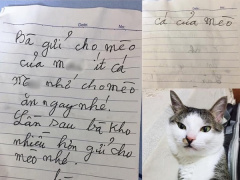 Bà gửi cho mèo
của ít cá
nhé cho mèo
ăn ngay nhé.
Lần sau bà kho
nhiều hơn gửi cho
mèo nhé.
cá của mèo